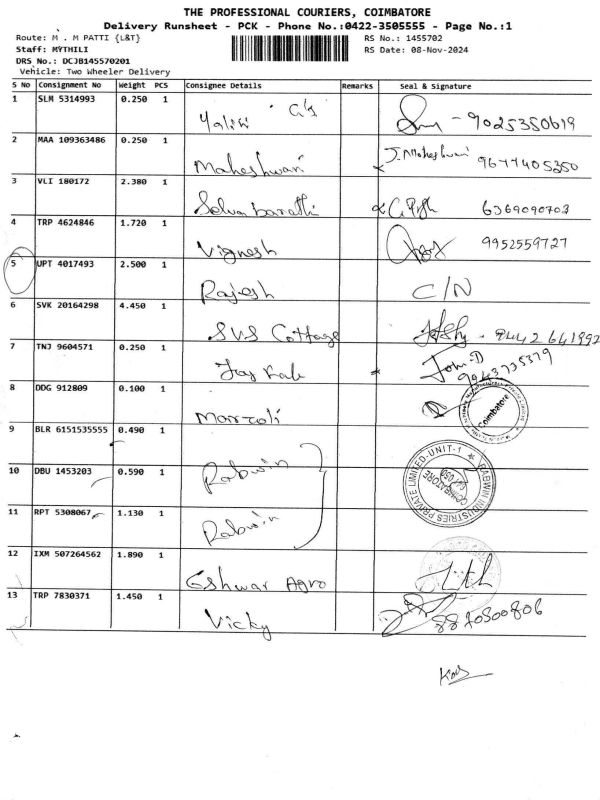 THE PROFESSIONAL COURIERS, COIMBATORE
Delivery Runsheet - PCK - Phone No.:0422-3505555 - Page No.:1
Route: M . M PATTI {L&T}
RS No.: 1455702
Staff: MYTHILI
RS Date: 08-Nov-2024
DRS No.: DCJB145570201
Vehicle: Two Wheeler Delivery
S No Consignment No Weight PCS Consignee Details Remarks Seal & Signature
1 SLM 5314993 0.250 1 9025350619
2 MAA 109363486 0.250 1 Maheshwari J. Maheshwari 9677405350
3 VLI 180172 2.380 1 Selva barathi 6369090703
4 TRP 4624846 1.720 1 Vignesh 9952559727
5 UPT 4017493 2.500 1 Rajesh C/N
6 SVK 20164298 4.450 1 SVS Cottage 9442641992
7 TNJ 9604571 0.250 1 9943735379
8 DDG 912809 0.100 1 Coimbatore
9 BLR 6151535555 0.490 1
10 DBU 1453203 0.590 1 Rabwin RABWIN INDUSTRIES PRIVATE LIMITED-UNIT-1 COIMBATORE
11 RPT 5308067 1.130 1 Rabwin
12 IXM 507264562 1.890 1 Eshwar Agro
13 TRP 7830371 1.450 1 Vicky 8870500806